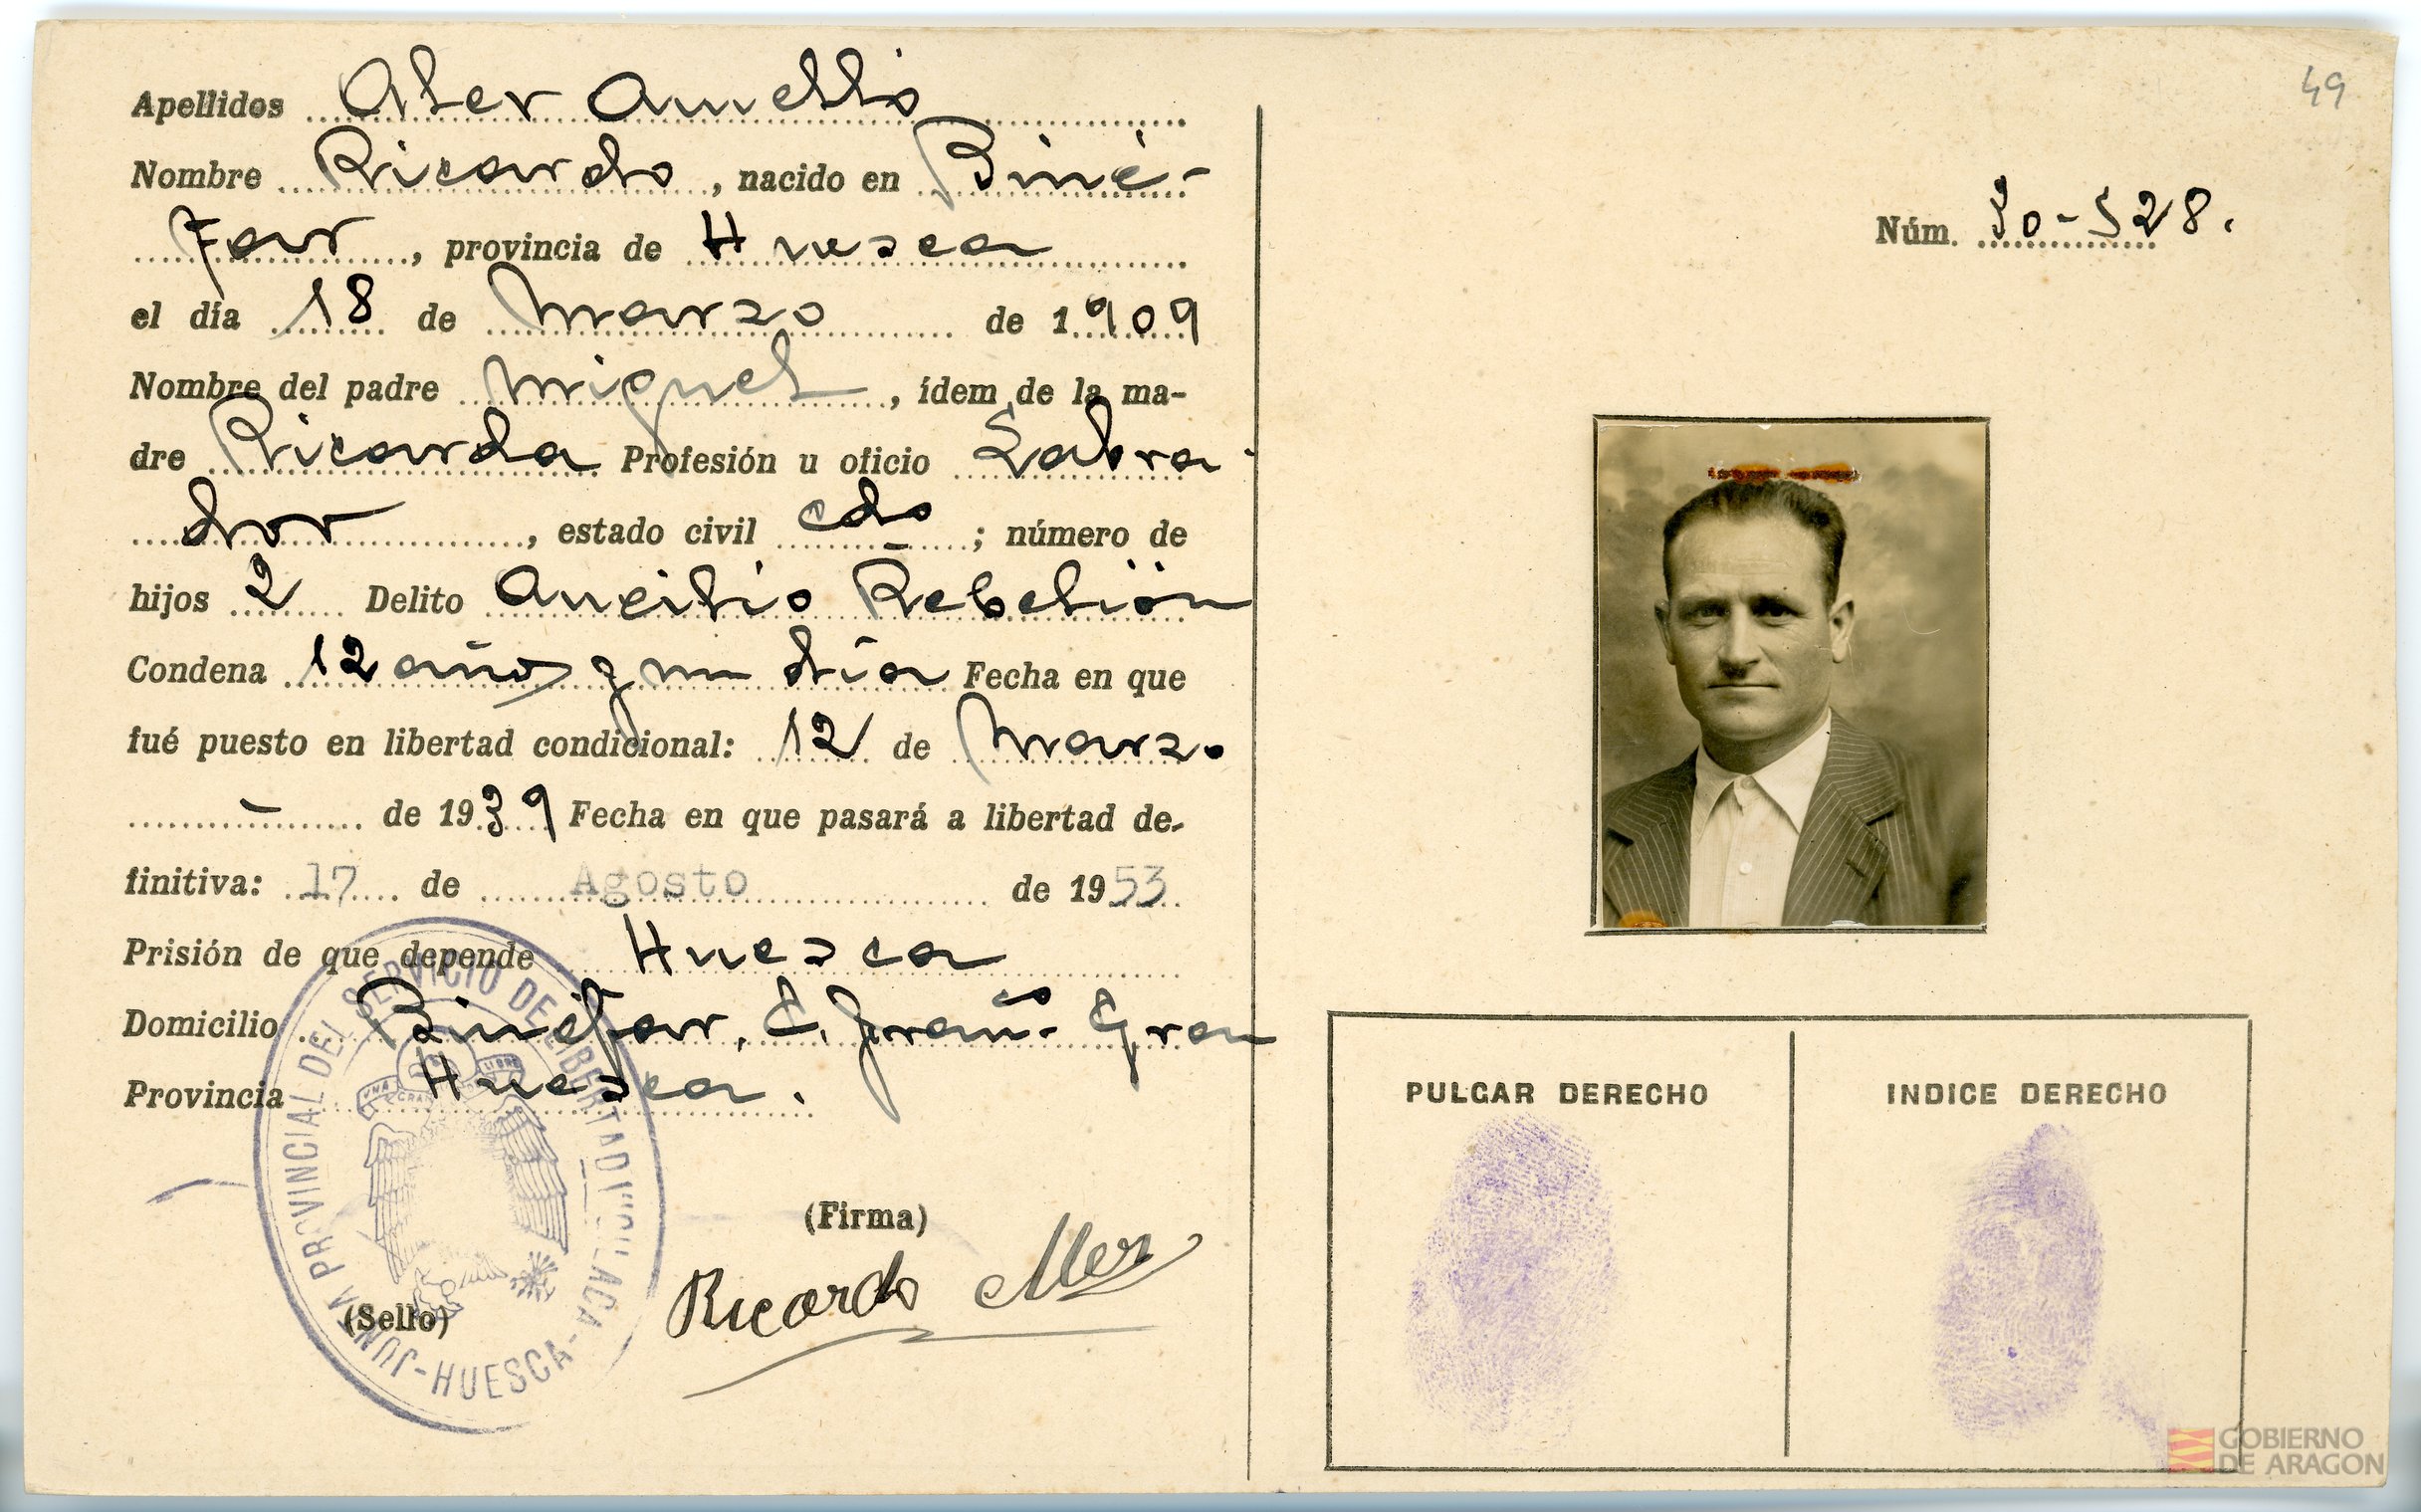 Apellidos Aler Amella
Nombre Ricardo, nacido en Biné-
far, provincia de Huesca
el día 18 de Marzo de 1909
Nombre del padre Miguel, ídem de la ma-
dre Ricarda Profesión u oficio Labra-
dor, estado civil cdo; número de
hijos 2 Delito Auxilio Rebelión
Condena 12 años y un día Fecha en que
fué puesto en libertad condicional: 12 de Marzo
- de 1939 Fecha en que pasará a libertad de-
finitiva: 17 de Agosto de 1953
Prisión de que depende Huesca
Domicilio Binéfar, C.
Provincia Huesca.
(Firma)
Ricardo Aler
(Sello)
JUNTA PROVINCIAL DEL SERVICIO DE LIBERTAD VIGILADA-HUESCA-
UNA GRANDE LIBRE
49
Núm. 30-528.
PULGAR DERECHO
INDICE DERECHO
GOBIERNO
DE ARAGON